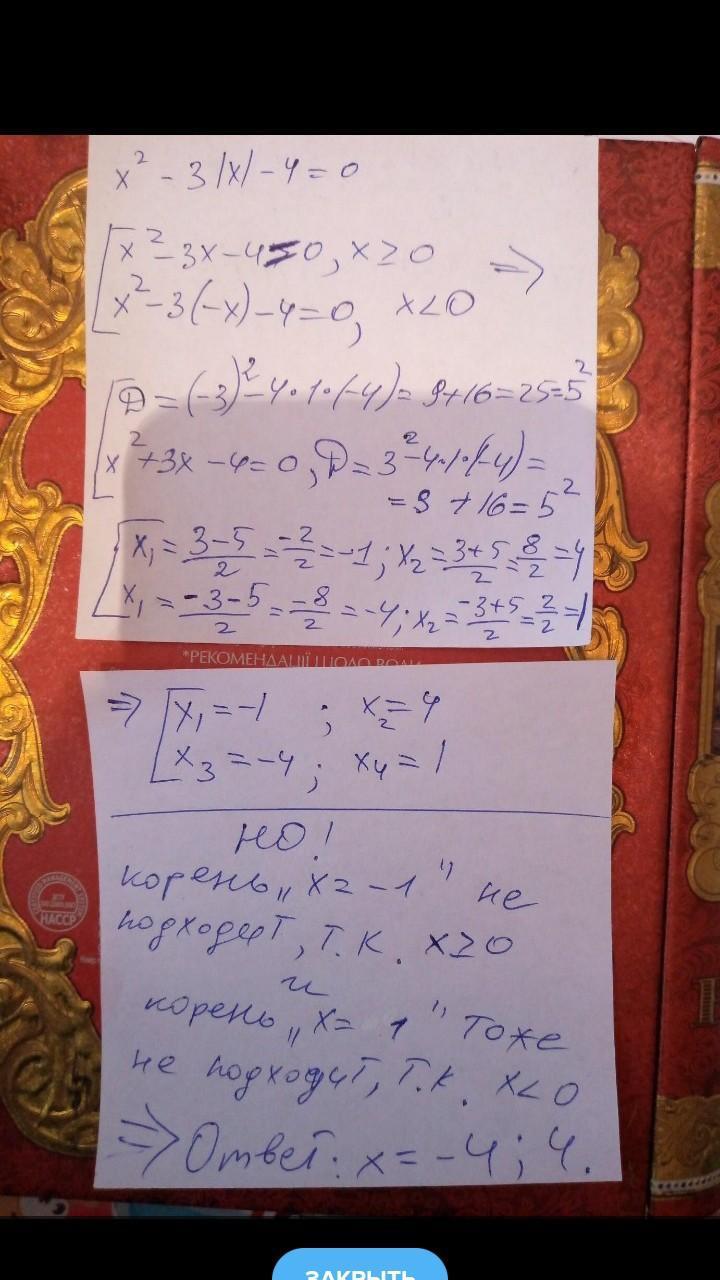 x² - 3|x| - 4 = 0
x² - 3x - 4 = 0, x ≥ 0
x² - 3(-x) - 4 = 0, x < 0
⇒
D = (-3)² - 4·1·(-4) = 9 + 16 = 25 = 5²
x² + 3x - 4 = 0, D = 3² - 4·1·(-4) =
= 9 + 16 = 5²
x₁ = 3-5/2 = -2/2 = -1; x₂ = 3+5/2 = 8/2 = 4
x₁ = -3-5/2 = -8/2 = -4; x₂ = -3+5/2 = 2/2 = 1
*РЕКОМЕНДАЦІЇ ЩОДО
⇒ x₁ = -1 ; x₂ = 4
x₃ = -4 ; x₄ = 1
НО!
корень „x = -1" не
подходит, т.к. x ≥ 0
и
корень „x = 1" тоже
не подходит, т.к. x < 0
⇒ Ответ: x = -4; 4.
НАССР
ЗАКРЫТЬ